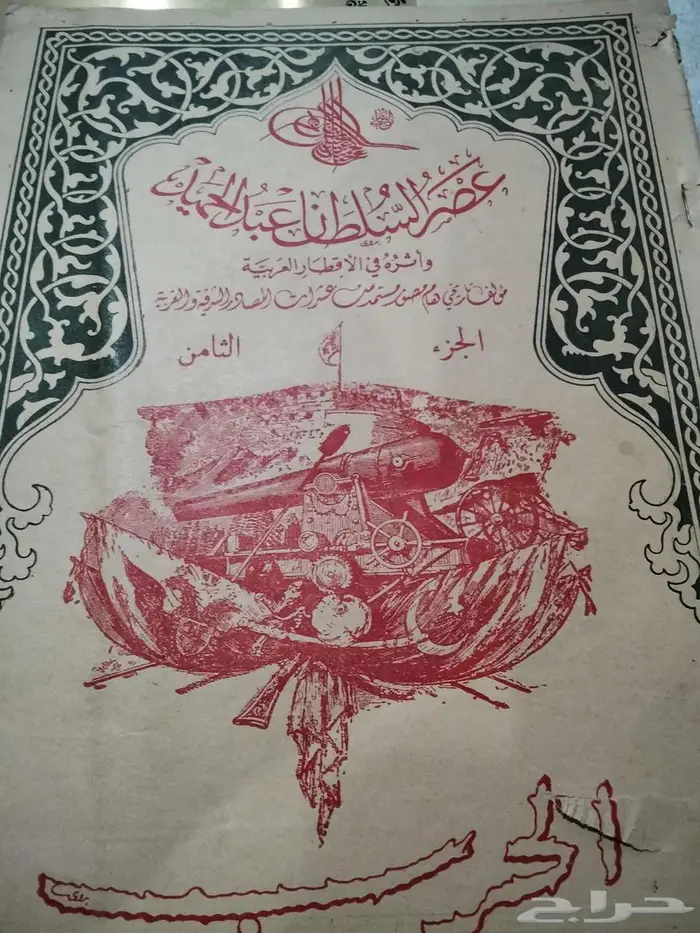 عَصْرُ السُّلطَان عَبْد الحَميد
وأثرُهُ في الأقطار العربيَّة
مؤلف تاريخي هام مصور مستمد من عشرات المصادر الشرقية والغربية
الجزء الثامن
حراج